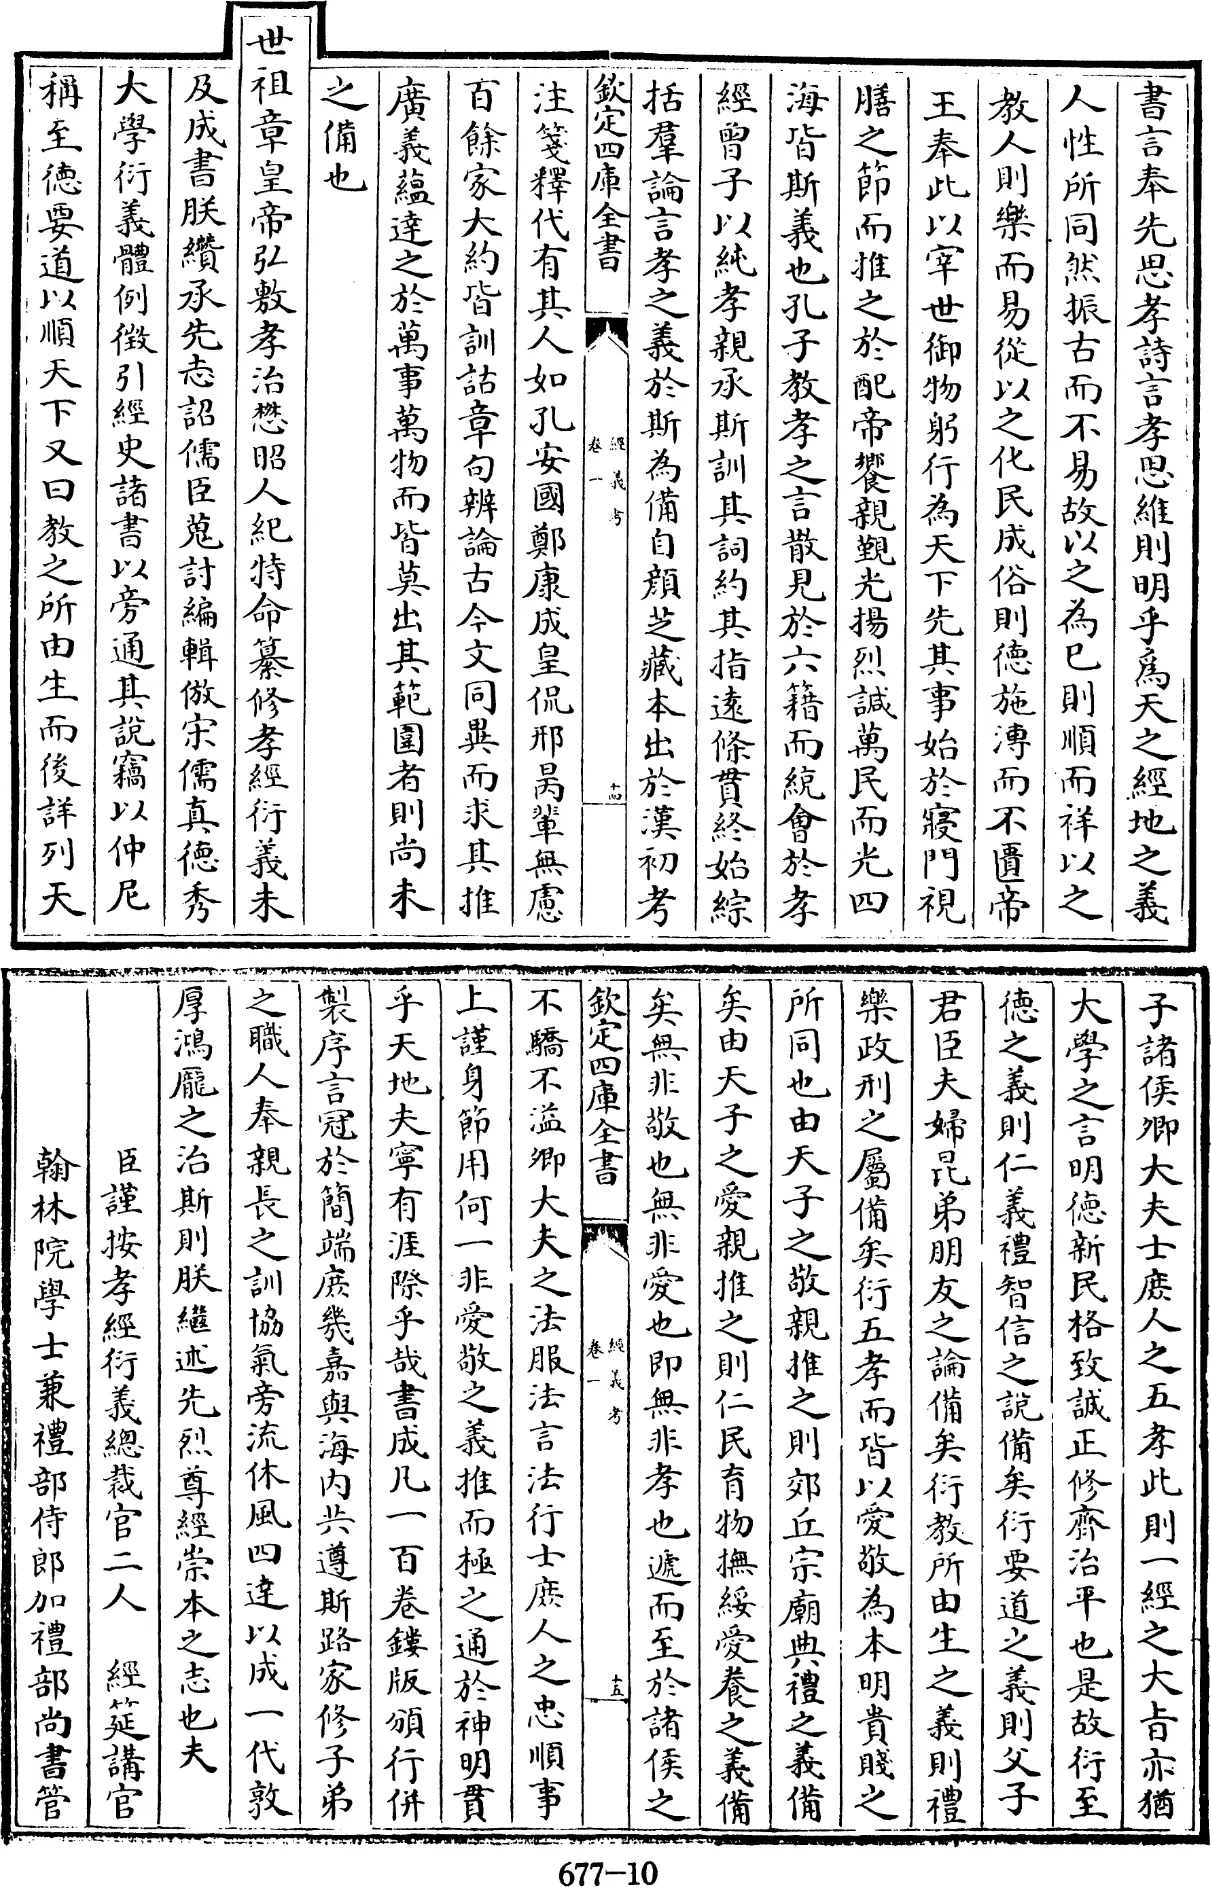 書言奉先思孝詩言孝思維則明乎為天之經地之義
人性所同然振古而不易故以之為已則順而祥以之
教人則樂而易從以之化民成俗則德施溥而不匱帝
王奉此以宰世御物躬行為天下先其事始於寢門視
膳之節而推之於配帝饗親覲光揚烈諴萬民而光四
海皆斯義也孔子教孝之言散見於六籍而統會於孝
經曾子以純孝親承斯訓其詞約其指遠條貫終始綜
括羣論言孝之義於斯為備自顔芝藏本出於漢初考
欽定四庫全書
經義考
卷一
十四
注箋釋代有其人如孔安國鄭康成皇侃邢昺輩無慮
百餘家大約皆訓詁章句辨論古今文同異而求其推
廣義蘊達之於萬事萬物而皆莫出其範圍者則尚未
之備也
世祖章皇帝弘敷孝治懋昭人紀特命纂修孝經衍義未
及成書朕纘承先志詔儒臣蒐討編輯倣宋儒真德秀
大學衍義體例徵引經史諸書以旁通其說竊以仲尼
稱至德要道以順天下又曰教之所由生而後詳列天
子諸侯卿大夫士庶人之五孝此則一經之大旨亦猶
大學之言明德新民格致誠正修齊治平也是故衍至
德之義則仁義禮智信之說備矣衍要道之義則父子
君臣夫婦昆弟朋友之論備矣衍教所由生之義則禮
樂政刑之屬備矣衍五孝而皆以愛敬為本明貴賤之
所同也由天子之敬親推之則郊丘宗廟典禮之義備
矣由天子之愛親推之則仁民育物撫綏愛養之義備
矣無非敬也無非愛也即無非孝也遞而至於諸侯之
欽定四庫全書
經義考
卷一
十五
不驕不溢卿大夫之法服法言法行士庶人之忠順事
上謹身節用何一非愛敬之義推而極之通於神明貫
乎天地夫寧有涯際乎哉書成凡一百卷鏤版頒行併
製序言冠於簡端庶幾嘉與海内共遵斯路家修子弟
之職人奉親長之訓協氣旁流休風四達以成一代敦
厚鴻龎之治斯則朕繼述先烈尊經崇本之志也夫
臣謹按孝經衍義總裁官二人 經筵講官
翰林院學士兼禮部侍郎加禮部尚書管
677-10